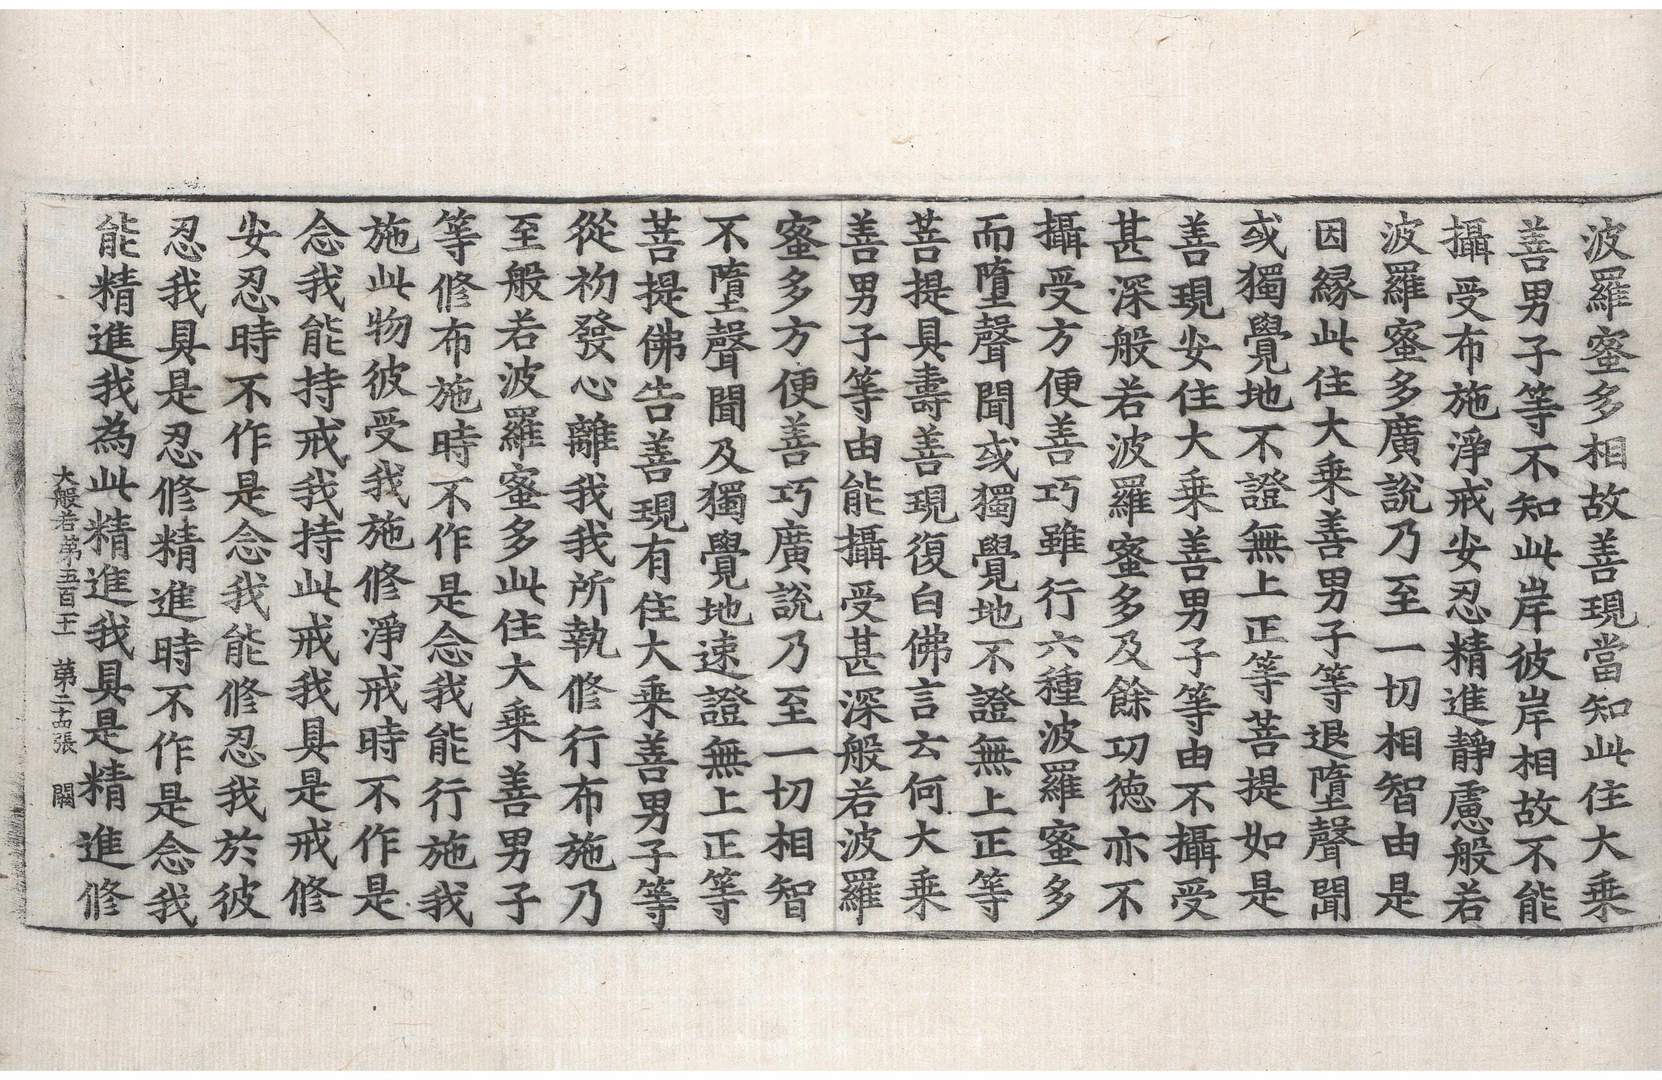 波羅蜜多相故善現當知此住大乘
善男子等不知此岸彼岸相故不能
攝受布施淨戒安忍精進靜慮般若
波羅蜜多廣說乃至一切相智由是
因緣此住大乘善男子等退墮聲聞
或獨覺地不證無上正等菩提如是
善現安住大乘善男子等由不攝受
甚深般若波羅蜜多及餘功德亦不
攝受方便善巧雖行六種波羅蜜多
而墮聲聞或獨覺地不證無上正等
菩提具壽善現復白佛言云何大乘
善男子等由能攝受甚深般若波羅
蜜多方便善巧廣說乃至一切相智
不墮聲聞及獨覺地速證無上正等
菩提佛告善現有住大乘善男子等
從初發心離我我所執修行布施乃
至般若波羅蜜多此住大乘善男子
等修布施時不作是念我能行施我
施此物彼受我施修淨戒時不作是
念我能持戒我持此戒我具是戒修
安忍時不作是念我能修忍我於彼
忍我具是忍修精進時不作是念我
能精進我為此精進我具是精進修
大般若第五百十一 第二十四張 闕